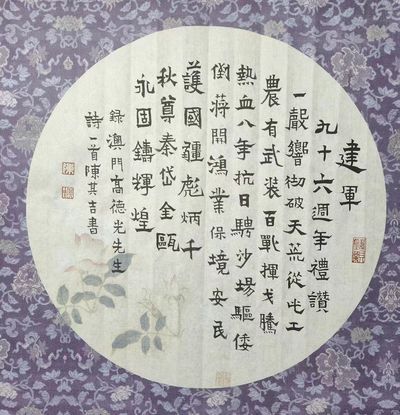 建軍
九十六週年禮讚
一聲響彻破天荒從此工
農有武裝百戰揮戈騰
熱血八年抗日騁沙場驅倭
倒蔣開鴻業保境安民
護國疆彪炳千
秋尊泰岱金甌
永固鑄輝煌
錄澳門高德光先生
詩一首陳其吉書